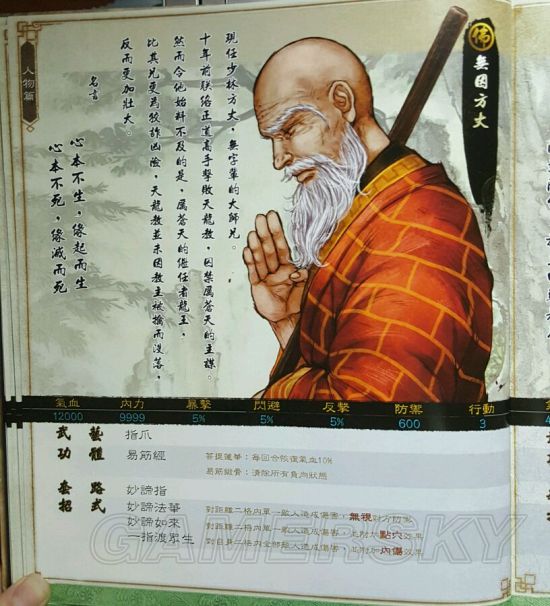 無因方丈
人物篇
現任少林方丈，無字輩的大師兄。
十年前聯絡正道高手擊敗天龍教，囚禁厲蒼天的主謀。
然而令他始料不及的是，厲蒼天的繼任者龍王，
比其兄更為狡詐凶險，天龍教並未因教主被擒而沒落，
反而更加壯大。
名言
心本不生，緣起而生
心本不死，緣滅而死
氣血 內力 暴擊 閃避 反擊 防禦 行動
12000 9999 5% 5% 5% 600 3
武功 藝體
指爪
易筋經 菩提蓮華：每回合恢復氣血10%
易筋鍛骨：清除所有負向狀態
套招 路式
妙諦指
妙諦法華 對距離二格內單一敵人造成傷害，無視對方防禦
妙諦如來 對距離二格內單一敵人造成傷害，並附加點穴效果
一指渡眾生 對自身二格內全部敵人造成傷害，並附加內傷效果
GAMERSKY